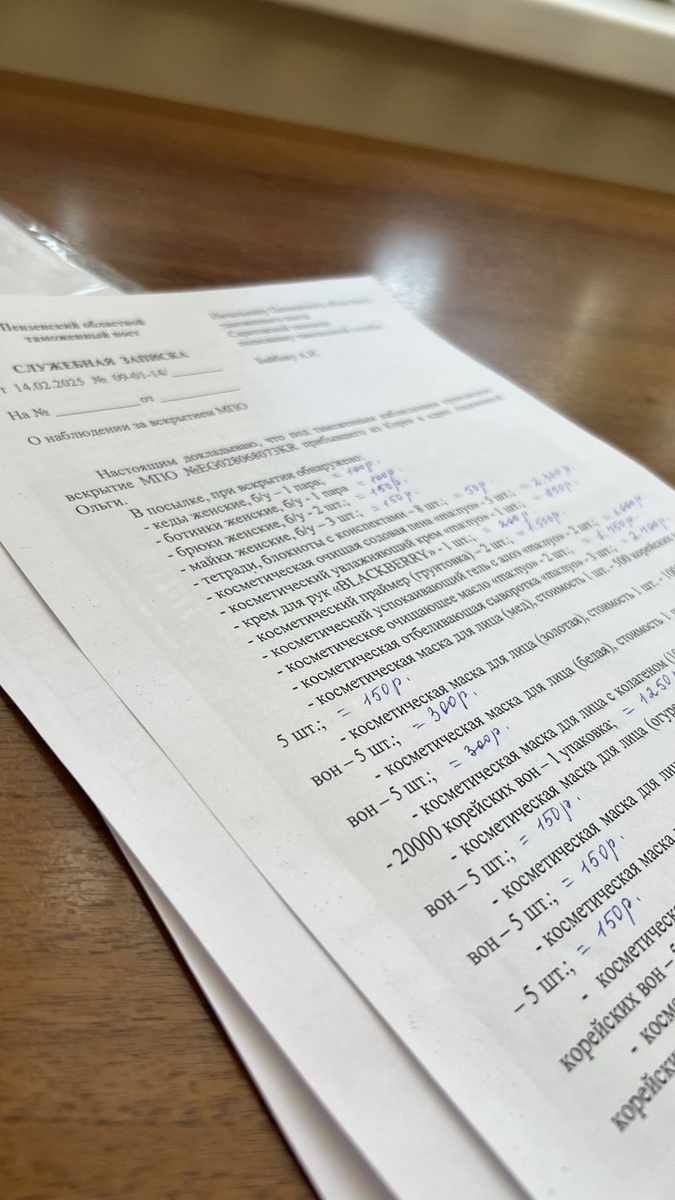 Пензенский областной
таможенный пост
СЛУЖЕБНАЯ ЗАПИСКА
т 14.02.2025 № 09-01-14/
На № от
О наблюдении за вскрытием МПО
Начальнику
Настоящим докладываю, что под таможенным наблюдением произведено
вскрытие МПО №EG028068073KR прибывшего из Кореи в адрес
Ольги.
В посылке, при вскрытии обнаружено:
- кеды женские, б/у – 1 пара; = 100р.
- ботинки женские, б/у - 1 пара = 100р.
- брюки женские, б/у - 2 шт.; = 150р.
- майки женские, б/у – 3 шт.; = 150р.
- тетради, блокноты с конспектами – 8 шт.; = 50р.
- косметическая очищая соловая пена шт.; = 2.500р
- косметический увлажняющий крем - 1 шт.; = 850р.
- крем для рук «BLACKBERRY» - 1 шт.; = 200р.
- косметический праймер (грунтовка) – 2 шт.; = 1.500р.
- косметический успокаивающий гель с алоэ - 2 шт.;
- косметическое очищающее масло шт.; = 1.450р.
- косметическая отбеливающая сыворотка - 3 шт.; = 2.400р.
- косметическая маска для лица (мед), стоимость 1 шт. - 500 корейских
5 шт.; = 150р.
- косметическая маска для лица (золотая), стоимость 1 шт. -
вон – 5 шт.; = 300р.
- косметическая маска для лица (белая), стоимость 1
вон – 5 шт.; = 300р.
- косметическая маска для лица с колагеном
- 20000 корейских вон – 1 упаковка; = 1250
- косметическая маска для лица
вон – 5 шт.; = 150р.
- косметическая маска для
вон – 5 шт.; = 150р.
- косметическая маска
– 5 шт.; = 150р.
- косметическ
корейских вон –
- косм
корейски